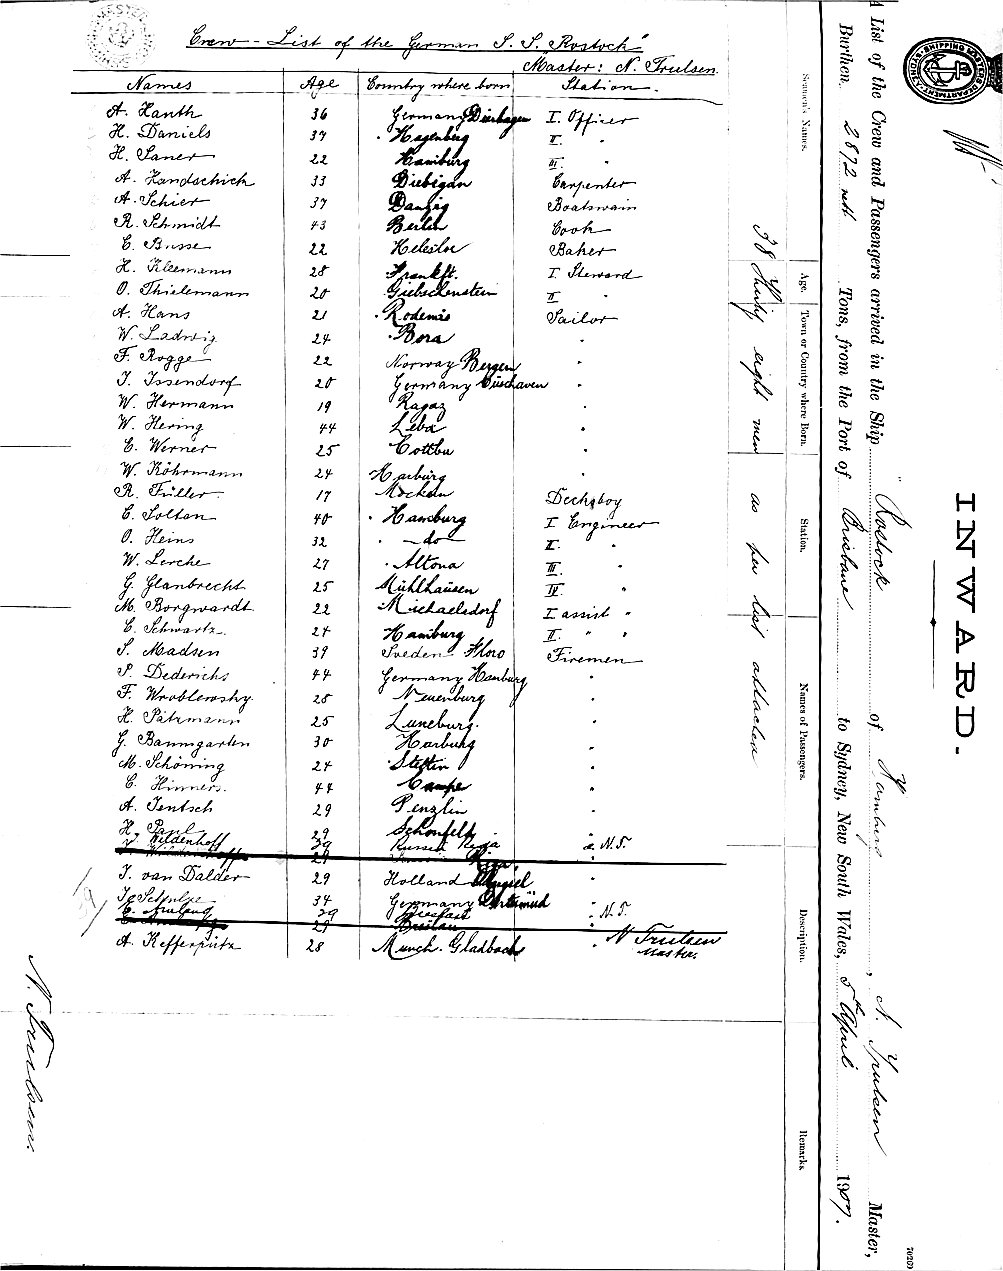 Crew - List of the German S. S. "Rostock"
Master: N. Trulsen.
Names Age Country where born Station.
A. Hanth 36 Germany Dierhagen I. Officer
H. Daniels 37 Hagenberg II. "
H. Saner 22 Hamburg III. "
A. Handschich 33 Diebigan Carpenter
A. Schier 37 Danzig Boatswain
R. Schmidt 43 Berlin Cook
C. Busse 22 Baker
H. Kleemann 28 Frankft. I Steward
O. Thielemann 20 Giebichenstein II "
A. Hans 21 Rodemis Sailor
W. Ladwig 24 Bora "
F. Rogge 22 Norway Bergen "
J. Issendorf 20 Germany Cuxhaven "
W. Hermann 19 Ragaz "
W. Hering 44 Leba "
C. Werner 25 Cottbu "
W. Köhrmann 24 Harburg "
R. Füller 17 Mockau Decksboy
C. Soltan 40 Hamburg I Engineer
O. Heins 32 - do - II. "
W. Lerche 27 Altona III. "
G. Glanbrecht 25 Mühlhausen IV. "
M. Borgwardt 22 Michaelsdorf I assist "
C. Schwartz. 24 Hamburg II. " "
S. Madsen 39 Sveden Floro Firemen
P. Dederichs 44 Germany Hamburg "
F. Wroblewsky 28 Neuenburg "
H. Pätzmann 25 Luneburg. "
G. Baumgarten 30 Harburg "
M. Schöning 24 Stettin "
C. Hinners. 44 Campe "
A. Jentsch 29 Penzlin "
H. Paul 29 Schönfeld "
Hildenhoff 39 Riga " N.T.
29 Riga.
J. van Dalder 29 Holland "
Schulze 34 Germany Dortmund "
29 " N.T.
29 Breslau "
A. Kefferpütz 28 Munch. Gladbach "
N Trulsen
Master.
N. Trulsen.
INWARD.
A List of the Crew and Passengers arrived in the Ship "Rostock of Hamburg, N. Trulsen Master,
Burthon. 2872 nett Tons, from the Port of Brisbane to Sydney, New South Wales, 5th April 1907.
Seamen's Names. Age. Town or Country where Born. Station. Names of Passengers. Description. Remarks.
38 Thirty eight men as per list attached
SHIPPING MASTER'S DEPARTMENT SYDNEY
70209